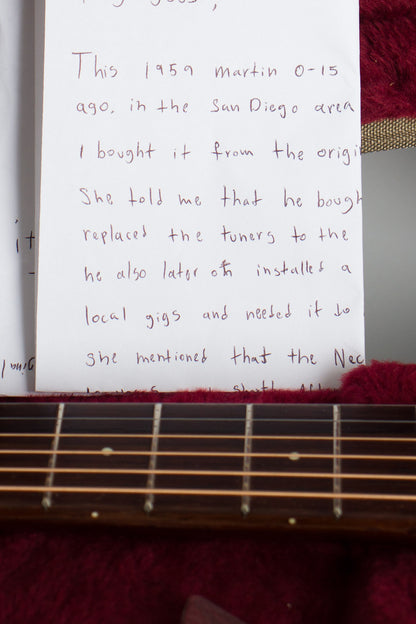 This 1959 martin 0-15
ago, in the San Diego area
I bought it from the origi
She told me that he bough
replaced the tuners to the
he also later on installed a
local gigs and needed it to
she mentioned that the Nec
it
ginal